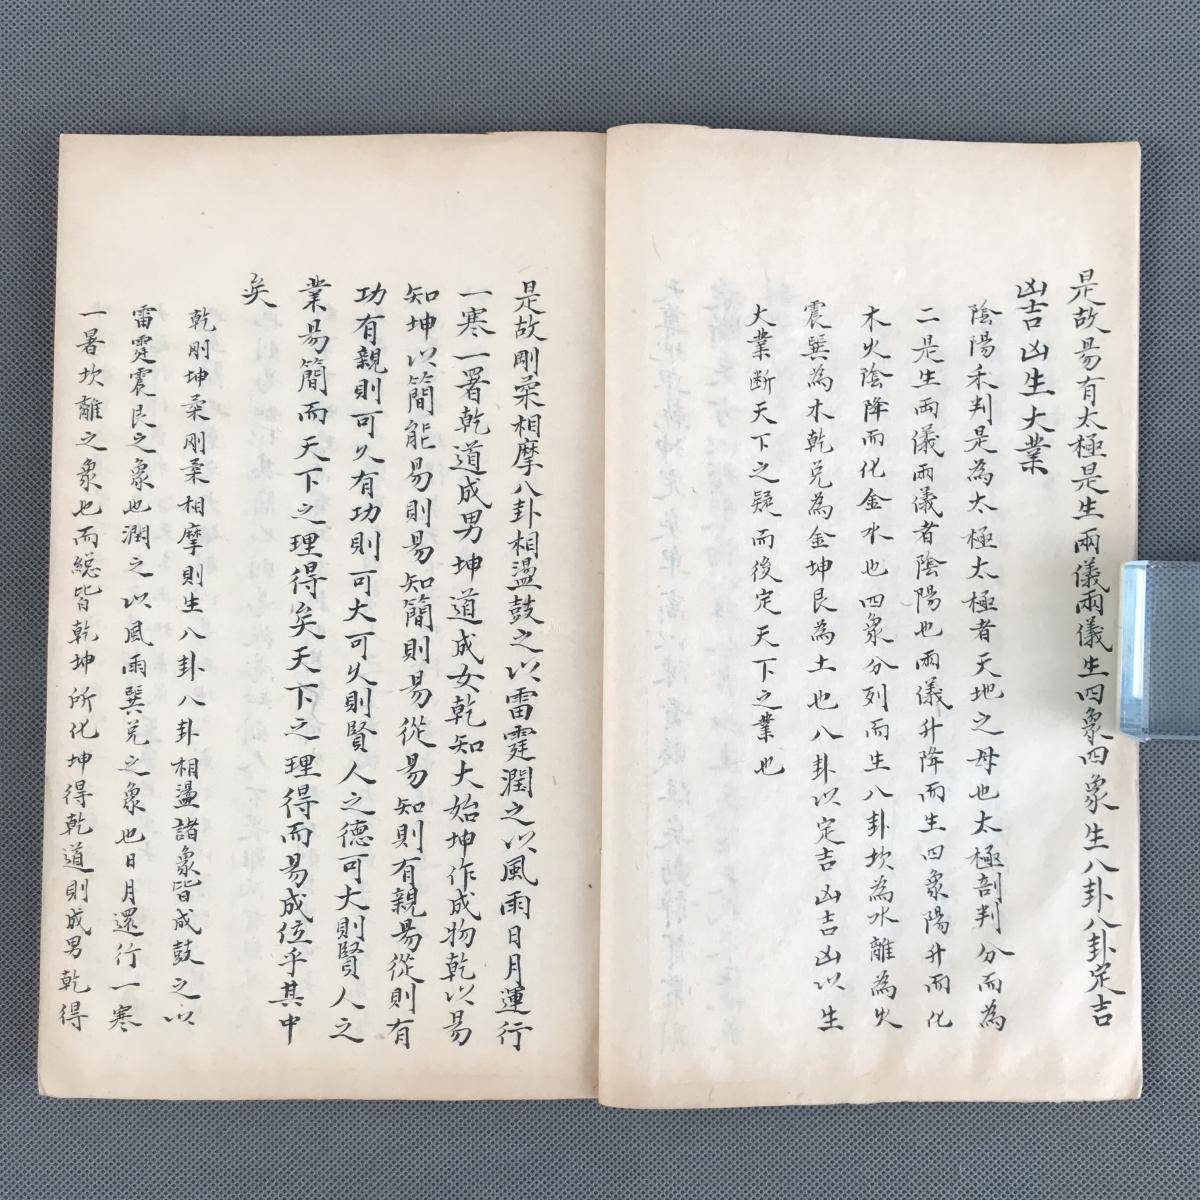 是故昜有太極是生兩儀兩儀生四象四象生八卦八卦定吉
凶吉凶生大業
陰陽未判是為太極太極者天地之母也太極剖判分而為
二是生兩儀兩儀者陰陽也兩儀升降而生四象陽升而化
木火陰降而化金水也四象分列而生八卦坎為水離為火
震巽為木乾兌為金坤艮為土也八卦以定吉凶吉凶以生
大業断天下之疑而後定天下之業也
是故剛柔相摩八卦相盪鼓之以雷霆潤之以風雨日月運行
一寒一署乾道成男坤道成女乾知大始坤作成物乾以昜
知坤以簡能昜則昜知簡則昜從昜知則有親昜從則有
功有親則可久有功則可大可久則賢人之德可大則賢人之
業昜簡而天下之理得矣天下之理得而昜成位乎其中
矣
乾剛坤柔剛柔相摩則生八卦八卦相盪諸象皆成鼓之以
雷霆震艮之象也潤之以風雨巽兌之象也日月還行一寒
一暑坎離之象也而総皆乾坤所化坤得乾道則成男乾得